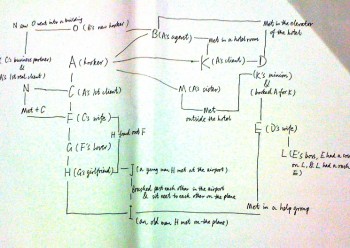 N saw O went into a building
O (B's new hooker)
B (A's agent)
Met in the elevator
of the hotel
Met in a hotel room
C's business partner
&
A's 1st real client)
A (hooker)
K (A's client)
D
(K's minion)
&
(booked A for K)
N
C (A's 1st client)
M (A's sister)
Met
outside the hotel
Met + C
F (C's wife)
H found out F
E (D's wife)
G (F's lover)
L (E's boss, E had a
on L, B L had a
H (G's girlfriend)
J (a young man H met at the airport)
brushed past each other in the airport
& sit next to each other on the plane
I (an old man H met on the plane)
Met in a help group